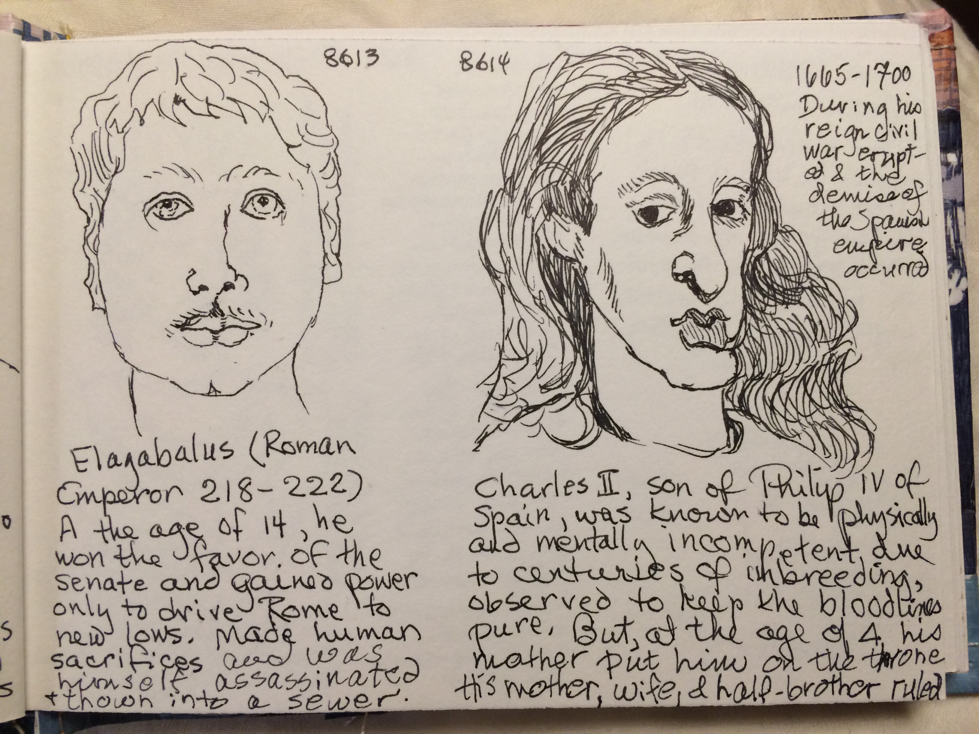 8613
Elagabalus (Roman
Emperor 218-222)
A the age of 14, he
won the favor. of the
senate and gained power
only to drive Rome to
new lows. Made human
sacrifices and was
himself assassinated
+ thown into a sewer.
8614
1665-1700
During his
reign civil
war erupt-
ed & the
demise of
the Spanish
empire
occurred
Charles II, son of Philip IV of
Spain, was known to be physically
and mentally incompetent, due
to centuries of inbreeding,
observed to keep the bloodlines
pure. But, at the age of 4, his
mother put him on the throne
His mother, wife, & half-brother ruled